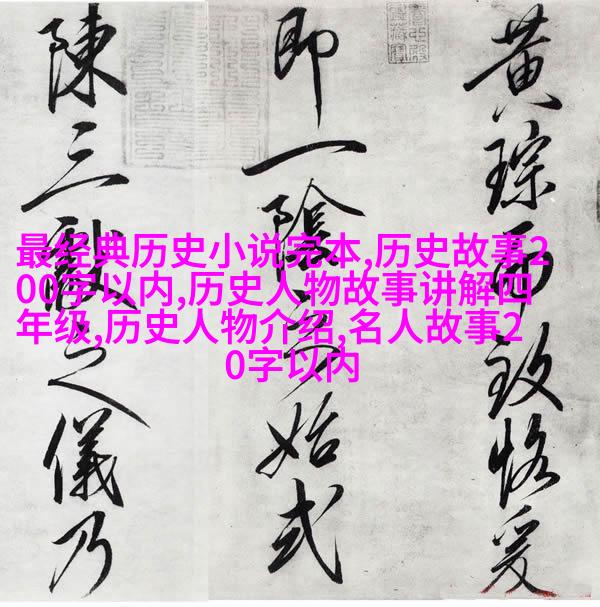 黄琮而致恪爰
即一陰始式
陳三獻之儀乃
最经典历史小说完本,历史故事2
00字以内,历史人物故事讲解四
年级,历史人物介绍,名人故事2
0字以内